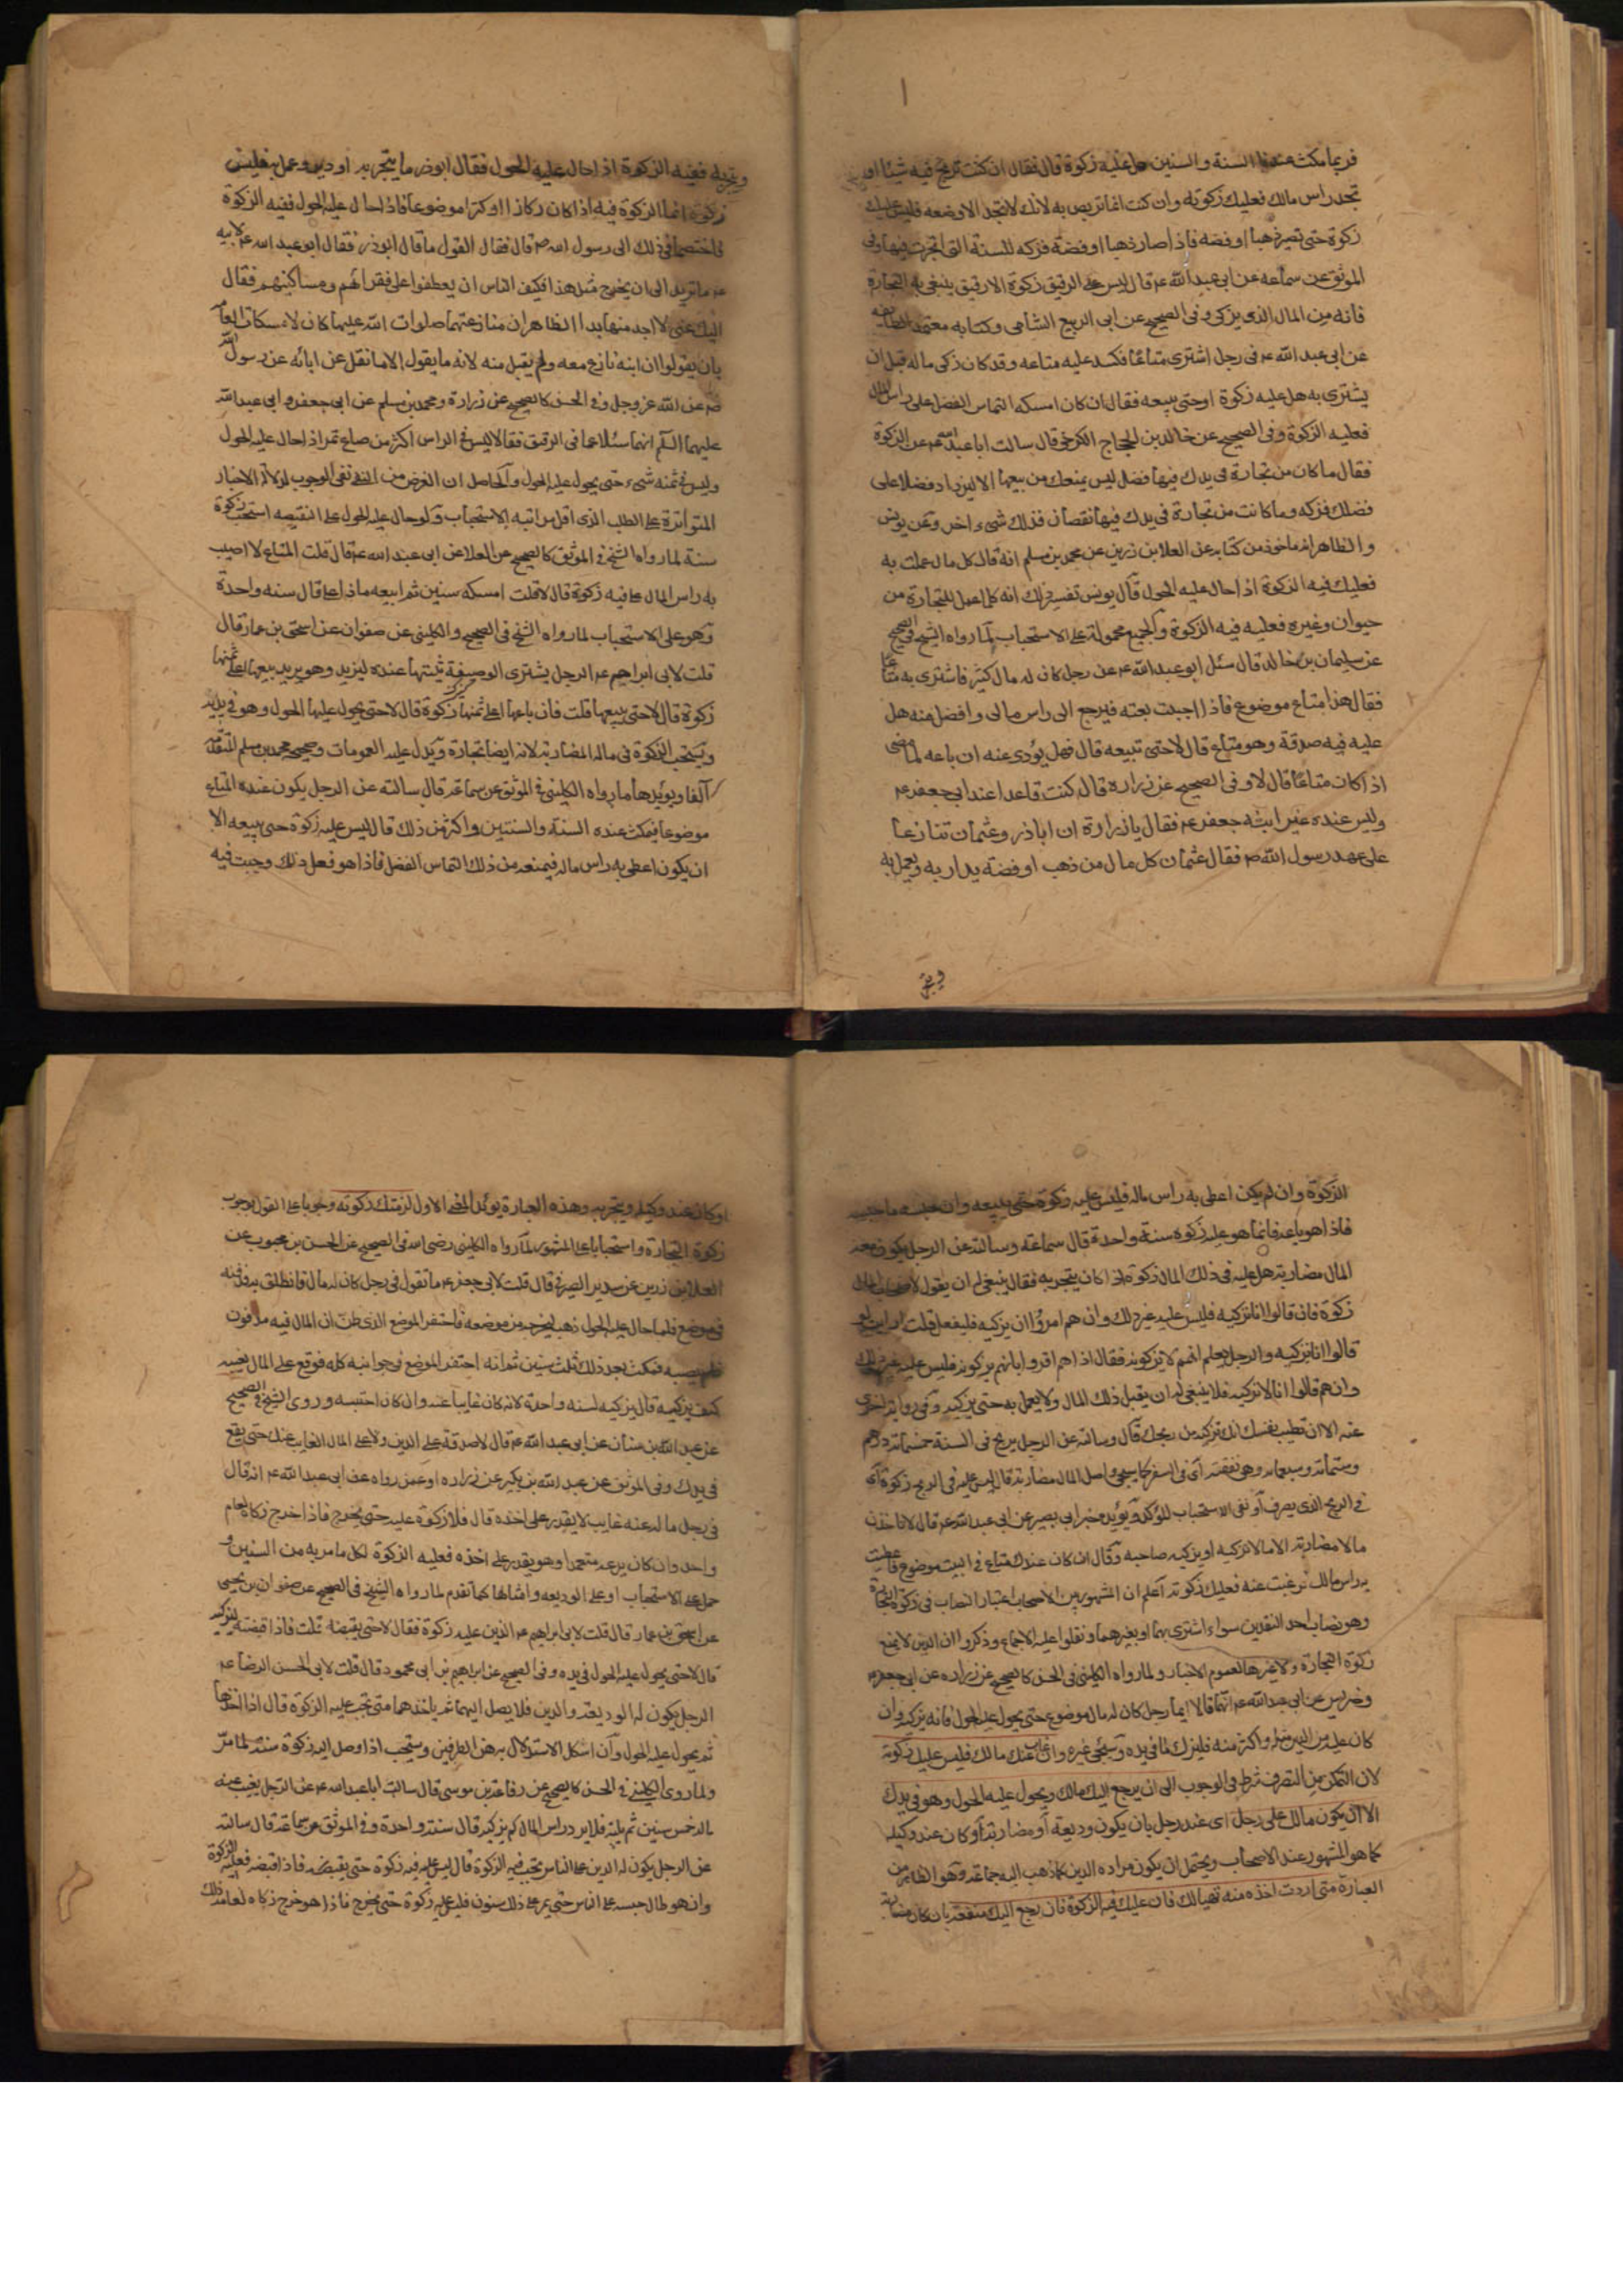 فربما مكث عندنا السنة والسنين هل عليه زكوة قال فقال ان كنت تربح فيه شيئا او
تجد راس مالك فعليك زكوته وان كنت انما تربص به لانك لا تجد الا وضعه فليس عليك
زكوة حتى تصير ذهبا او فضة فاذا صار ذهبا او فضة فزكه للسنة التى اتجرت فيها وفى
الموثق عن سماعه عن ابى عبد الله ع قال ليس على الرقيق زكوة الا رقيق يبتغى به التجارة
فانه من المال الذى يزكى وفى الصحيح عن ابى الربيع الشامى وكتابه معتمد الطايفه
عن ابى عبد الله ع فى رجل اشترى متاعا فكسد عليه متاعه وقد كان زكى ماله قبل ان
يشترى به هل عليه زكوة او حتى يبيعه فقال ان كان امسكه التماس الفضل على راس المال
فعليه الزكوة وفى الصحيح عن خالد بن الحجاج الكرخى قال سالت ابا عبد الله ع عن الزكوة
فقال ما كان من تجارة فى يدك فيها فضل ليس يمنعك من بيعها الا لتزداد فضلا على
فضلك فزكه وما كانت من تجارة فى يدك فيها نقصان فذلك شىء اخر وعن يونس
والظاهر انه ماخوذ من كتابه عن العلا بن رزين عن محمد بن مسلم انه قال كل مال عملت به
فعليك فيه الزكوة اذا حال عليه الحول قال يونس تفسير ذلك انه كلما عمل للتجارة من
حيوان وغيره فعليه فيه الزكوة والجميع محمولة على الاستحباب لما رواه الشيخ فى الصحيح
عن سليمان بن خالد قال سئل ابو عبد الله ع عن رجل كان له مال كثير فاشترى به متاعا
فقال هذا متاع موضوع فاذا احببت بعته فيرجع الى راس مالى وافضل منه هل
عليه فيه صدقة وهو متاع قال لا حتى تبيعه قال فهل يؤدى عنه ان باعه لما مضى
اذا كان متاعا قال لا وفى الصحيح عن زراره قال كنت قاعدا عند ابى جعفر ع
وليس عنده غير ابنه جعفر ع فقال يا زرارة ان اباذر وعثمان تنازعا
على عهد رسول الله ص فقال عثمان كل مال من ذهب او فضة يدار به ويعمل به
ويتجر
ويتجر به ففيه الزكوة اذا حال عليه الحول فقال ابوذر ما يتجر به او دير وعمل به فليس
زكوة انما الزكوة فيه اذا كان ركازا او كنزا موضوعا فاذا حال عليه الحول ففيه الزكوة
فاختصما فى ذلك الى رسول الله ص قال فقال القول ما قال ابوذر فقال ابو عبد الله ع لابيه
ع ما تريد الى ان يخرج مثل هذا فيكف الناس ان يعطفوا على فقرائهم ومساكينهم فقال
اليك عنى لا اجد منها بدا الظاهر ان منازعتهما صلوات الله عليهما كان لاسكات العامه
بان يقولوا ان ابنه نازع معه ولم يقبل منه لانه ما يقول الا ما نقل عن ابائه عن رسول الله
ص عن الله عز وجل وفى الحسن كالصحيح عن زرارة ومحمد بن مسلم عن ابى جعفر وابى عبد الله
عليهما السلم انهما سئلا عما فى الرقيق فقالا ليس فى الراس اكثر من صاع تمر اذا حال عليه الحول
وليس فى ثمنه شىء حتى يحول عليه الحول والحاصل ان الغرض من النفى نفى الوجوب لدلالة الاخبار
المتواترة على الطلب الذى اقل مراتبه الاستحباب ولو حال عليه الحول على النقيصه استحب زكوة
سنة لما رواه الشيخ فى الموثق كالصحيح عن العلا عن ابى عبد الله ع قال قلت المتاع لا اصيب
به راس المال على فيه زكوة قال لا قلت امسكه سنين ثم ابيعه ماذا على قال سنه واحدة
وهو على الاستحباب لما رواه الشيخ فى الصحيح والكلينى عن صفوان عن اسحق بن عمار قال
قلت لابى ابراهيم ع الرجل يشترى الوصيفة يثبتها عنده لتزيد وهو يريد بيعها اعلى ثمنها
زكوة قال لا حتى يبيعها قلت فان باعها ايزكى ثمنها قال لا حتى يحول عليها الحول وهو فى يديه
ويستحب الزكوة فى مال المضاربة لانه ايضا تجارة ويدل عليه العمومات وصحيحه محمد بن مسلم المتقدمه
آنفا ويؤيدها ما رواه الكلينى فى الموثق عن سماعة قال سالته عن الرجل يكون عنده المتاع
موضوعا فيمكث عنده السنة والسنتين واكثر من ذلك قال ليس عليه زكوة حتى يبيعه الا
ان يكون اعطى به راس ماله فيمنعه من ذلك التماس الفضل فاذا هو فعل ذلك وجبت فيه
الزكوة وان لم يكن اعطى به راس ماله فليس عليه زكوة حتى يبيعه وان حبسه ما حبسه
فاذا هو باعه فانما هو عليه زكوه سنة واحدة قال سماعة وسالته عن الرجل يكون معه
المال مضاربة هل عليه فى ذلك المال زكوة اذا كان يتجر به فقال ينبغى له ان يقول لاصحاب المال
زكوة فان قالوا انا نزكيه فليس عليه غير ذلك وان هم امروا ان يزكيه فليفعل قلت ارايت لو
قالوا انا نزكيه والرجل يعلم انهم لا يزكونه فقال اذا هم اقروا بانهم يزكونه فليس عليه غير ذلك
وان هم قالوا انا لا نزكيه فلا ينبغى له ان يقبل ذلك المال ولا يعمل به حتى يزكيه وفى رواية اخرى
عنه الا ان تطيب نفسك انك تزكيه من ربحك قال وسالته عن الرجل يربح فى السنة خمسمائة درهم
وستمائة وسبعمائه وهى نفقته اى فى السفر كما سيجئ واصل المال مضاربة قال ليس عليه فى الربح زكوة اى
فى الربح الذى يصرف او نفى الاستحباب المؤكد ويؤيده خبر ابى بصير عن ابى عبد الله ع قال لا تاخذن
مالا مضاربة الا مالا تزكيه او يزكيه صاحبه وقال ان كان عندك متاع فى البيت موضوع فاعطيت
به راس مالك فرغبت عنه فعليك زكوته اعلم ان المشهور بين الاصحاب اعتبار النصاب فى زكوة التجارة
وهو نصاب احد النقدين سواء اشترى بهما او بغيرهما ونقلوا عليه الاجماع وذكروا ان الدين لا يمنع
زكوة التجارة ولا غيرها لعموم الاخبار ولما رواه الكلينى فى الحسن كالصحيح عن زراره عن ابى جعفر ع
وضريس عن ابى عبد الله ع انهما قالا ايما رجل كان له مال موضوع حتى يحول عليه الحول فانه يزكيه وان
كان عليه من الدين مثله واكثر منه فليزك ما فى يده وسيجئ غيره وان غاب عنك مالك فليس عليك زكوته
لان التمكن من التصرف شرط فى الوجوب الى ان يرجع اليك مالك ويحول عليه الحول وهو فى يدك
الا ان يكون مالك على رجل اى عند رجل بان يكون وديعة او مضاربة او كان عند وكيله
كما هو المشهور عند الاصحاب ويحتمل ان يكون مراده الدين كما ذهب اليه جماعة وهو الظاهر من
العبارة متى اردت اخذه منه تهيا لك فان عليك فيه الزكوة فان رجع اليك منفعته بان كان مضاربة
او كان عند وكيله ويتجر به وهذه العبارة يؤيد المعنى الاول لزمتك زكوته وجوبا على القول بوجوب
زكوة التجارة واستحبابا على المشهور لما رواه الكلينى رضى الله فى الصحيح عن الحسن بن محبوب عن
العلا بن رزين عن سدير الصيرفى قال قلت لابى جعفر ع ما تقول فى رجل كان له مال فانطلق به فدفنه
فى موضع فلما حال عليه الحول ذهب ليخرجه من موضعه فاحتفر الموضع الذى ظن ان المال فيه مدفون
فلم يصبه فمكث بعد ذلك ثلث سنين ثم انه احتفر الموضع فى جوانبه كله فوقع على المال بعينه
كيف يزكيه قال يزكيه لسنه واحدة لانه كان غايبا عنه وان كان احتبسه وروى الشيخ فى الصحيح
عن عبد الله بن سنان عن ابى عبد الله ع قال لا صدقة على الدين ولا على المال الغايب عنك حتى يقع
فى يدك وفى الموثق عن عبد الله بن بكير عن زراره او عمن رواه عن ابى عبد الله ع انه قال
فى رجل ماله عنه غايب لا يقدر على اخذه قال فلا زكوة عليه حتى يخرج فاذا خرج زكاه لعام
واحد وان كان يدعه متعمدا وهو يقدر على اخذه فعليه الزكوة لكل ما مر به من السنين و
حمل على الاستحباب او على الوديعه وامثالها كما تقدم لما رواه الشيخ فى الصحيح عن صفوان بن يحيى
عن اسحق بن عمار قال قلت لابى ابراهيم ع الدين عليه زكوة فقال لا حتى يقبضه قلت فاذا قبضه يزكيه
قال لا حتى يحول عليه الحول فى يده وفى الصحيح عن ابراهيم بن ابى محمود قال قلت لابى الحسن الرضا ع
الرجل يكون له الوديعة والدين فلا يصل اليهما ثم ياخذهما متى تجب عليه الزكوة قال اذا اخذها
ثم يحول عليه الحول وان اشكل الاستدلال بهذين الطرفين ويستحب اذا وصل اليه زكوة سنة لما مر
ولما روى الكلينى فى الحسن كالصحيح عن رفاعة بن موسى قال سالت ابا عبد الله ع عن الرجل يغيب عنه
ماله خمس سنين ثم ياتيه فلا يرد راس المال كم يزكيه قال سنة واحدة وفى الموثق عن سماعة قال سالته
عن الرجل يكون له الدين على الناس تجب فيه الزكوة قال ليس عليه فيه زكوة حتى يقبضه فاذا قبضه فعليه الزكوة
وان هو طال حبسه على الناس حتى يمر على ذلك سنون فليس عليه زكوة حتى يخرج فاذا هو خرج زكاه لعامه ذلك